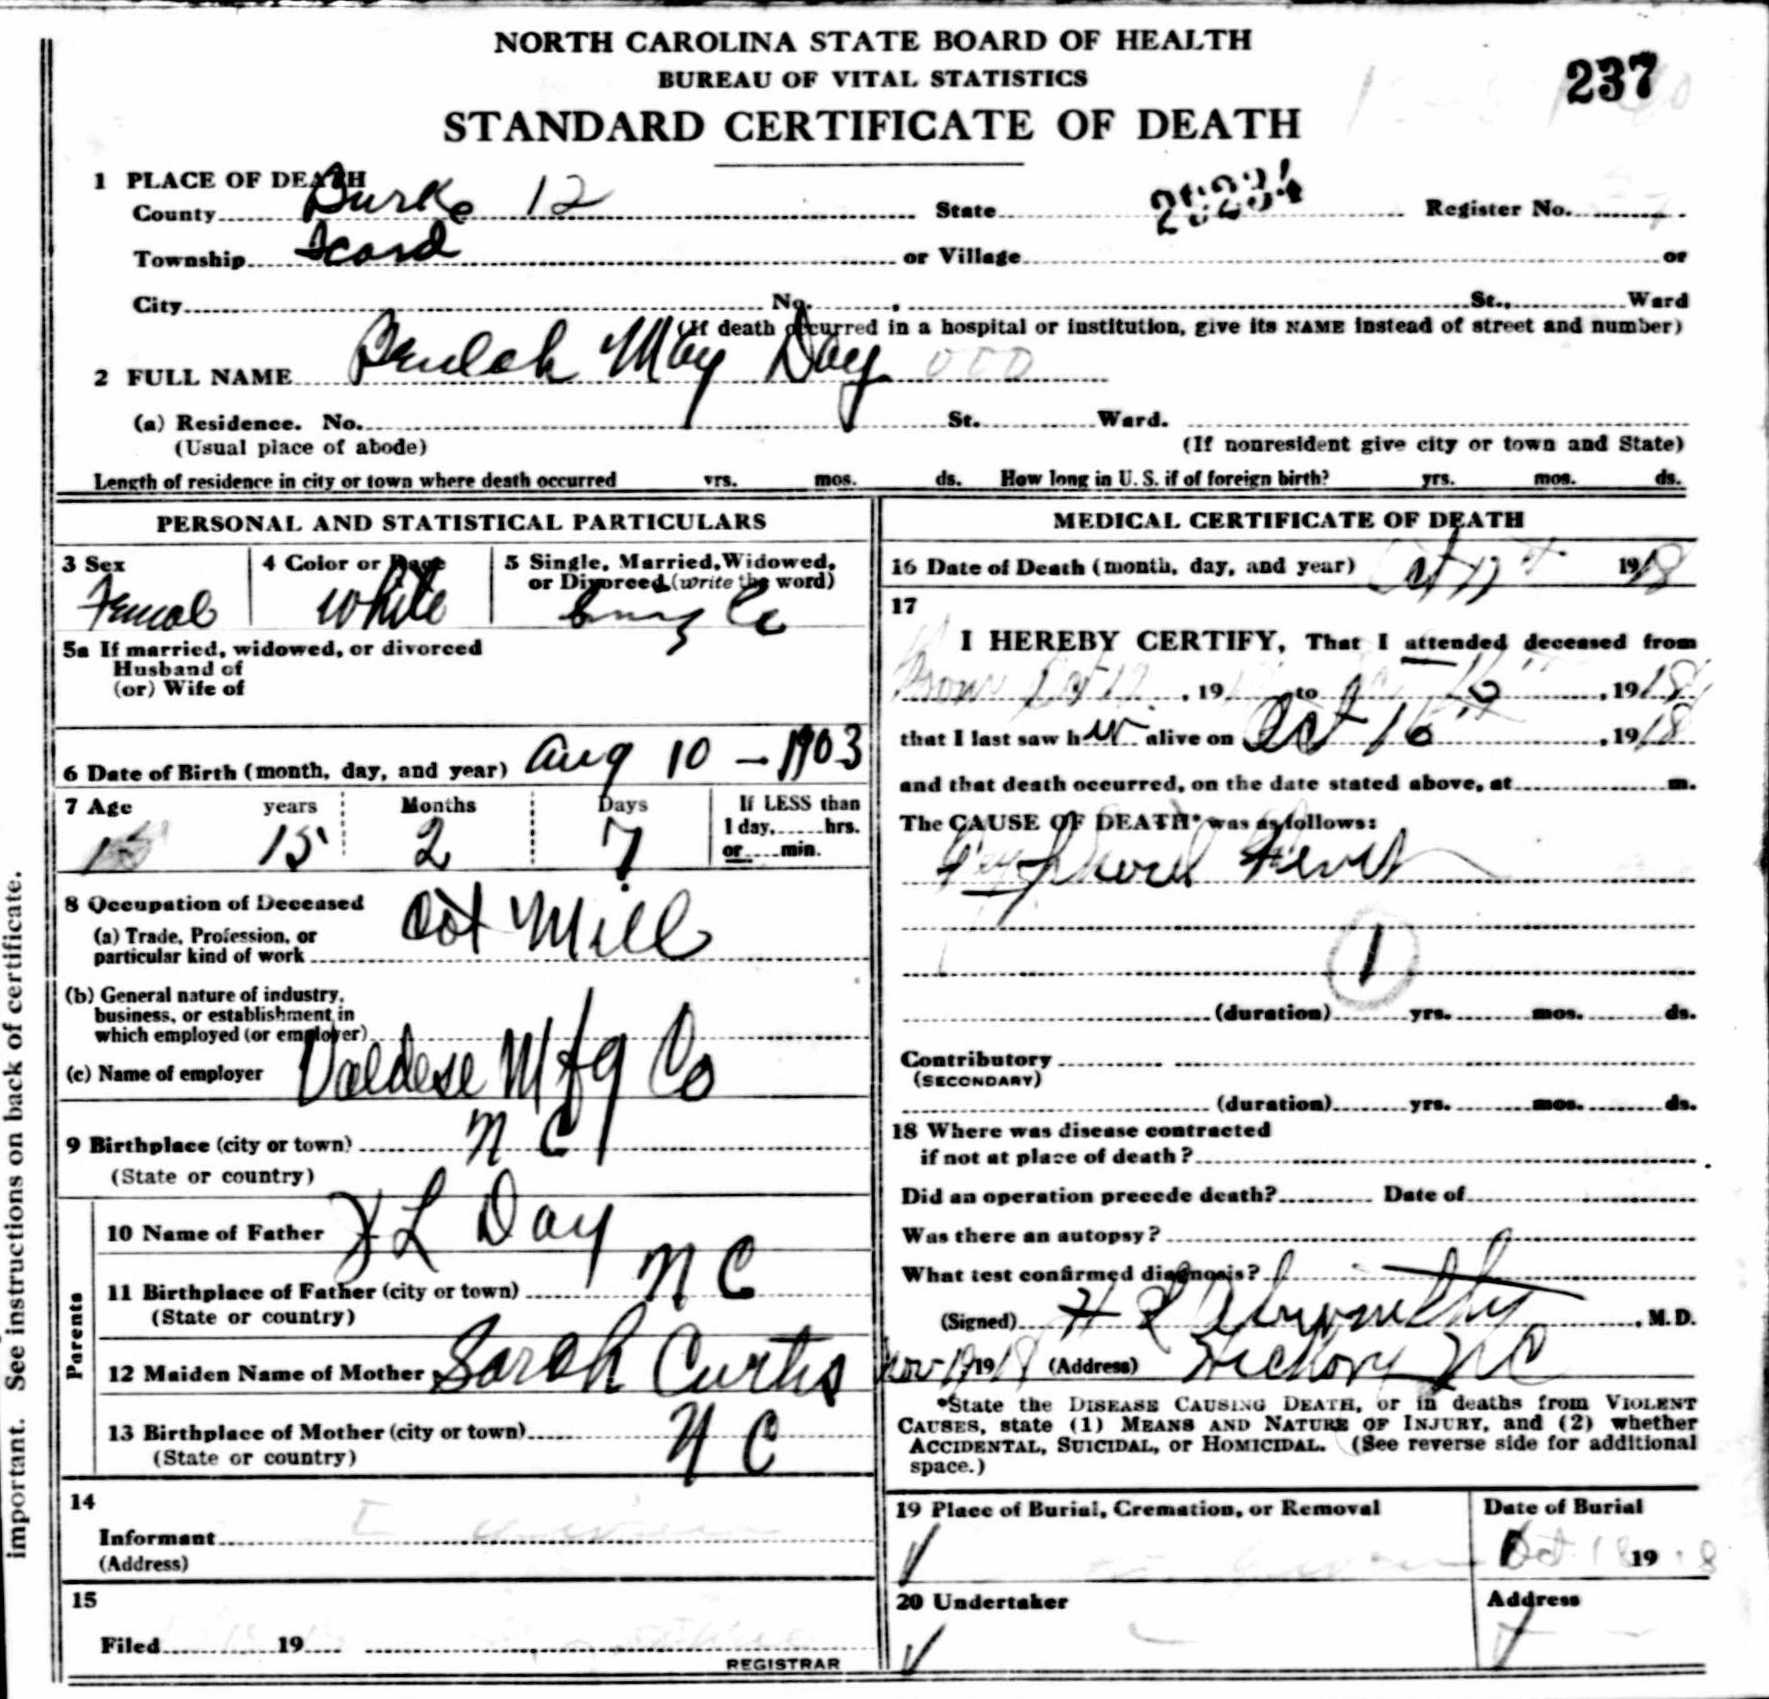 NORTH CAROLINA STATE BOARD OF HEALTH
BUREAU OF VITAL STATISTICS
237
STANDARD CERTIFICATE OF DEATH
1 PLACE OF DEATH
County Burke 12 State Register No.
Township Icard or Village or
City No. , St., Ward
(If death occurred in a hospital or institution, give its NAME instead of street and number)
2 FULL NAME Beulah May Day
(a) Residence. No. St. Ward.
(Usual place of abode) (If nonresident give city or town and State)
Length of residence in city or town where death occurred yrs. mos. ds. How long in U. S. if of foreign birth? yrs. mos. ds.
PERSONAL AND STATISTICAL PARTICULARS
3 Sex 4 Color or Race 5 Single, Married, Widowed,
or Divorced (write the word)
Femal White Single
5a If married, widowed, or divorced
Husband of
(or) Wife of
6 Date of Birth (month, day, and year) Aug 10 - 1903
7 Age years Months Days If LESS than
1 day, hrs.
15 2 7 or min.
8 Occupation of Deceased
(a) Trade, Profession, or
particular kind of work Cot Mill
(b) General nature of industry,
business, or establishment in
which employed (or employer)
(c) Name of employer Valdese Mfg Co
9 Birthplace (city or town) N C
(State or country)
Parents
10 Name of Father L Day
11 Birthplace of Father (city or town) N C
(State or country)
12 Maiden Name of Mother Sarah Curtis
13 Birthplace of Mother (city or town) N C
(State or country)
14
Informant
(Address)
15
Filed 19
REGISTRAR
MEDICAL CERTIFICATE OF DEATH
16 Date of Death (month, day, and year) Oct 17 1918
17
I HEREBY CERTIFY, That I attended deceased from
, 19 to , 1918
that I last saw her alive on Oct 16 , 1918
and that death occurred, on the date stated above, at m.
The CAUSE OF DEATH* was as follows:
Fever
1
(duration) yrs. mos. ds.
Contributory
(SECONDARY)
(duration) yrs. mos. ds.
18 Where was disease contracted
if not at place of death?
Did an operation precede death? Date of
Was there an autopsy?
What test confirmed diagnosis?
(Signed) H L Abernethy , M. D.
Nov 19 1918 (Address) Hickory N C
*State the DISEASE CAUSING DEATH, or in deaths from VIOLENT
CAUSES, state (1) MEANS AND NATURE OF INJURY, and (2) whether
ACCIDENTAL, SUICIDAL, or HOMICIDAL. (See reverse side for additional
space.)
19 Place of Burial, Cremation, or Removal Date of Burial
Oct 18 1918
20 Undertaker Address
important. See instructions on back of certificate.